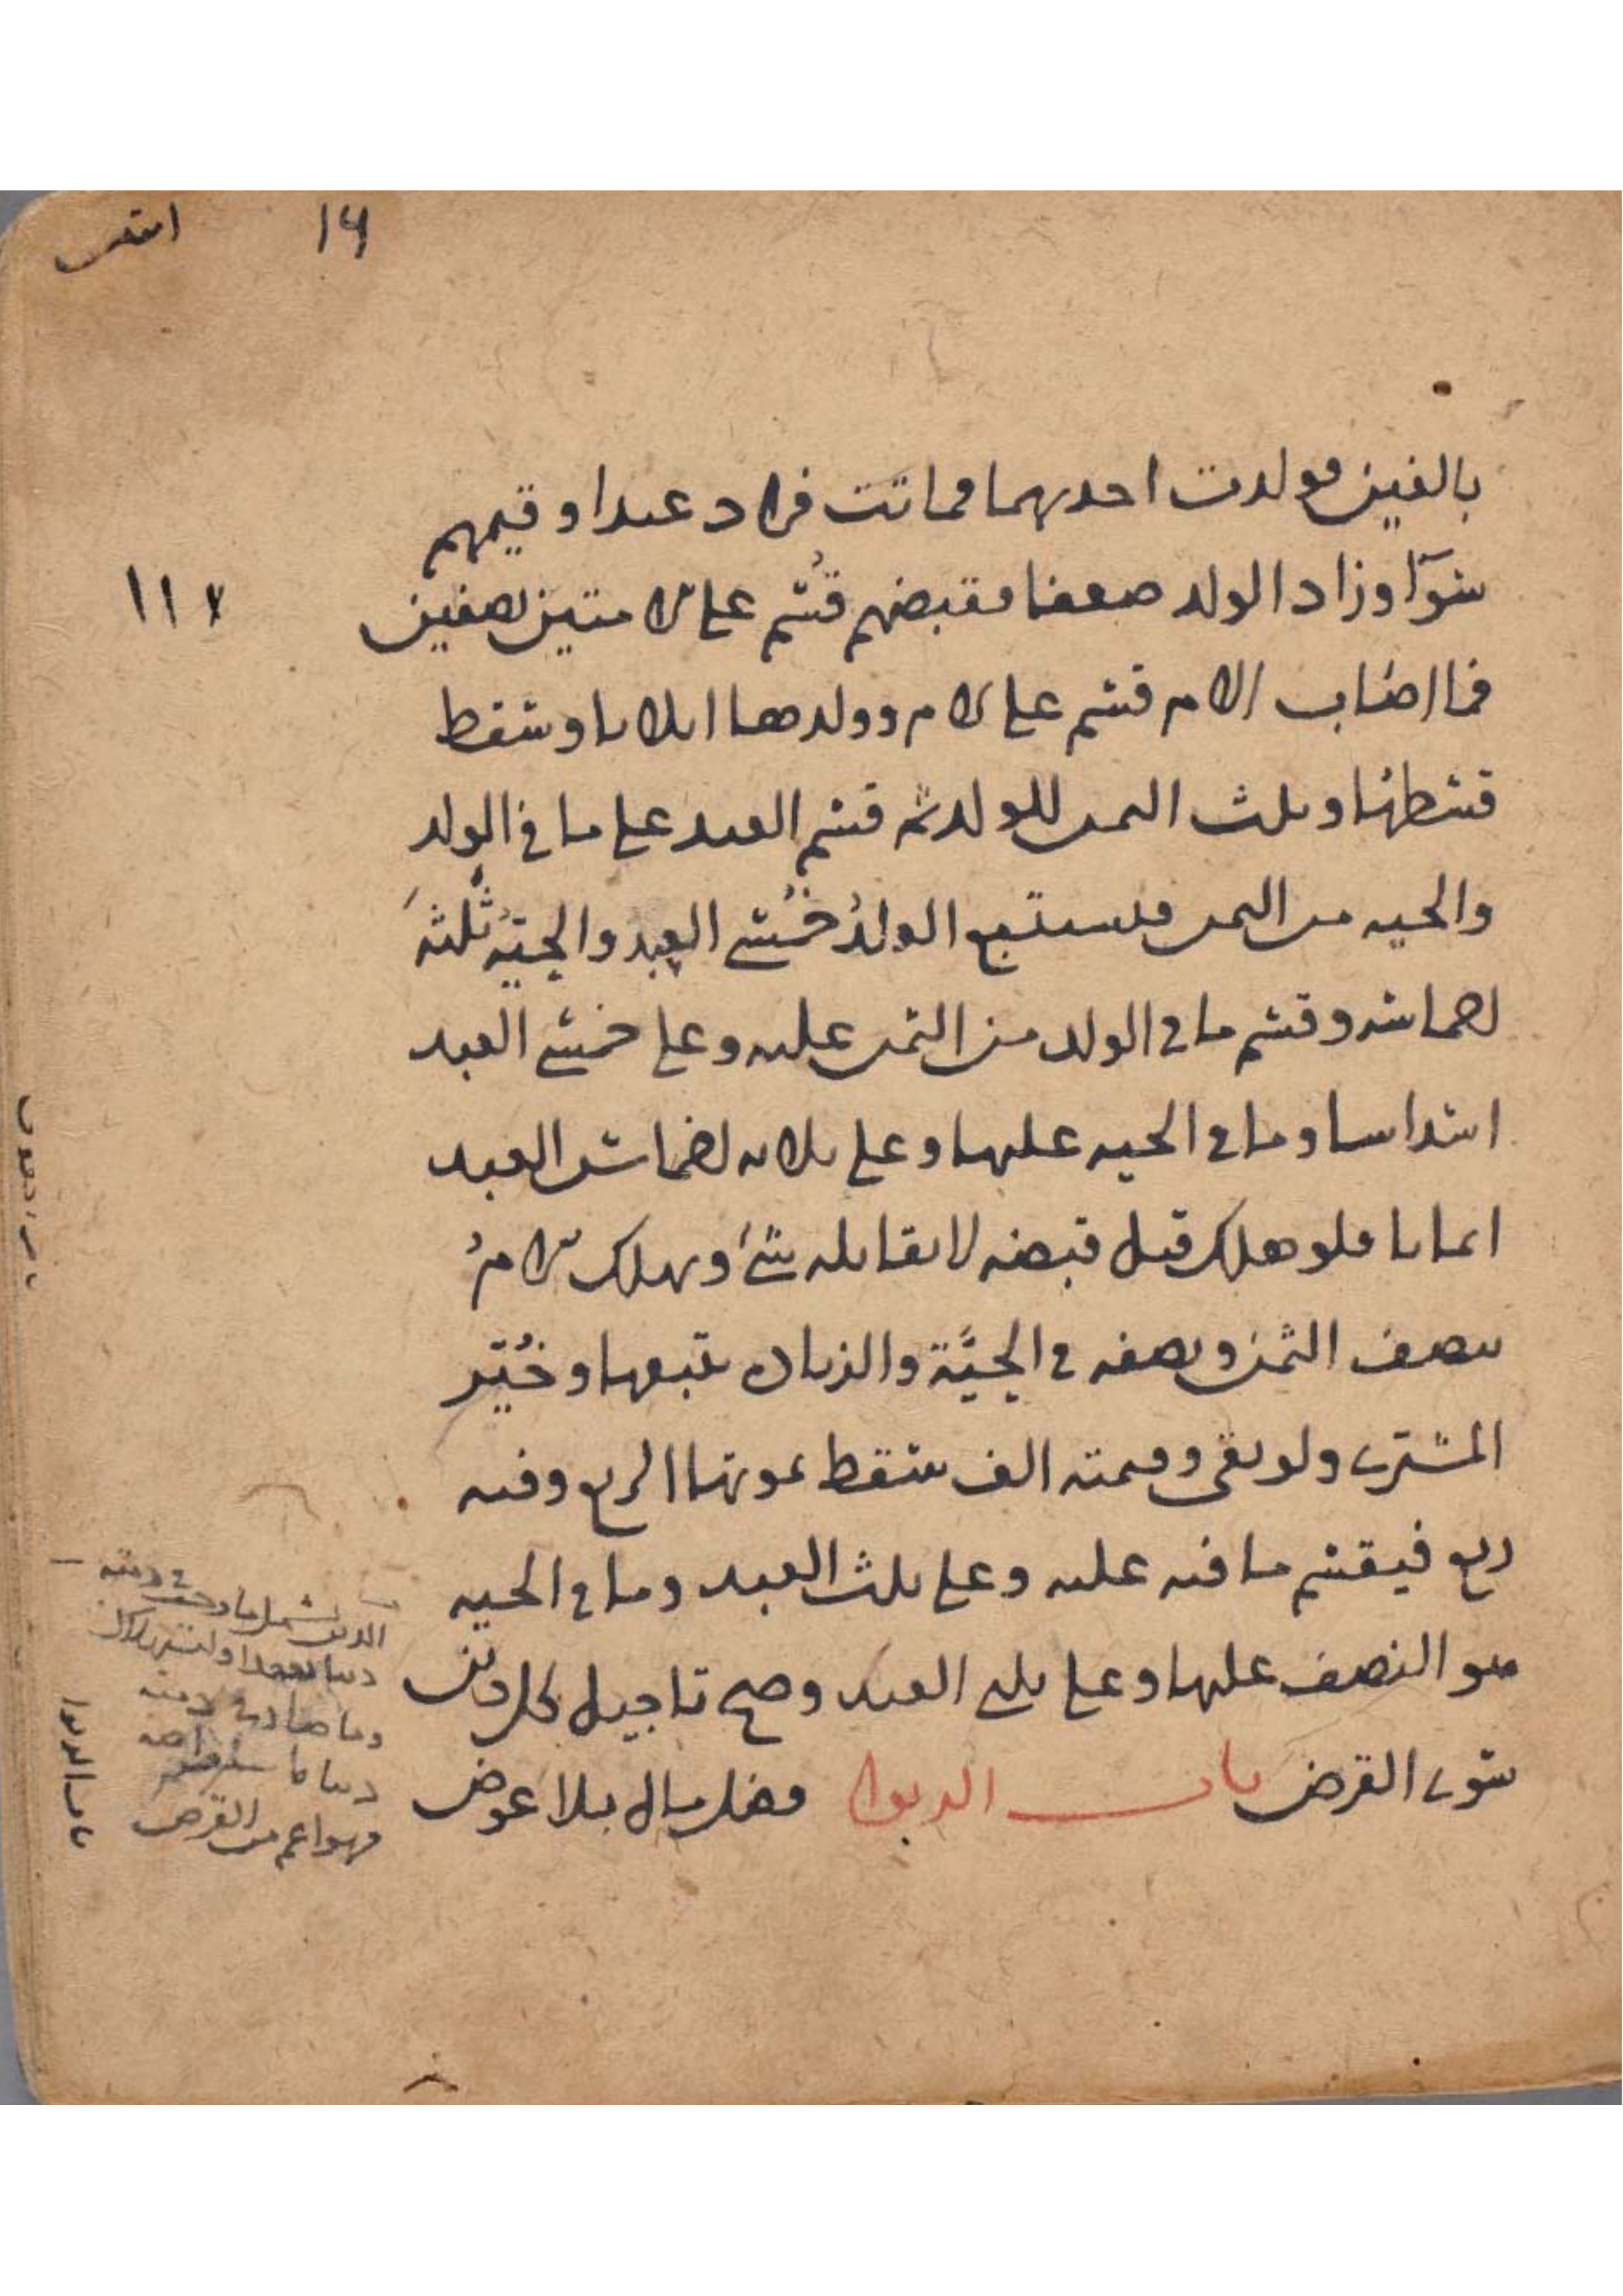 ١٩
انتفى
بالفين فولدت احديهما فماتت فزاد عبدا وقيمهم
سوآ وزاد الولد ضعفا فقبضهم قُسِم على الامتين نصفين
فما اصاب الام قسم على الام وولدها اثلاثا وسقط
قسطها وثلث الثمن للولد ثم قسم العبد على ما في الولد
والحية من الثمن فيستتبع الولدُ خُمسَي العبد والحيّةُ ثلثةَ
اخماسه وقسم ما في الولد من الثمن عليه وعلى خمسي العبد
اسداسا وما في الحية عليها وعلى ثلاثة اخماس العبد
اثمانا فلو هلك قبل قبضه لا يقابله شئ وتهلك الامُ
بنصف الثمن ونصفه في الحيَّة والزيادة تتبعها وخُيّر
المشترى ولو بقى وقيمته الف سقط بموتها الربع وفيه
ربع فيقسم ما فيه عليه وعلى ثلث العبد وما في الحية
هو النصف عليها وعلى ثلثي العبد وصح تاجيل كل دين
سوى القرض باب الربوا فضل مال بلا عوض
١١٧
الدين يشمل ما وجب في ذمته
دينا بعقد او استهلاك
وما صار في ذمته
دينا باستقراضه
فهو اعم من القرض
باب الربوا